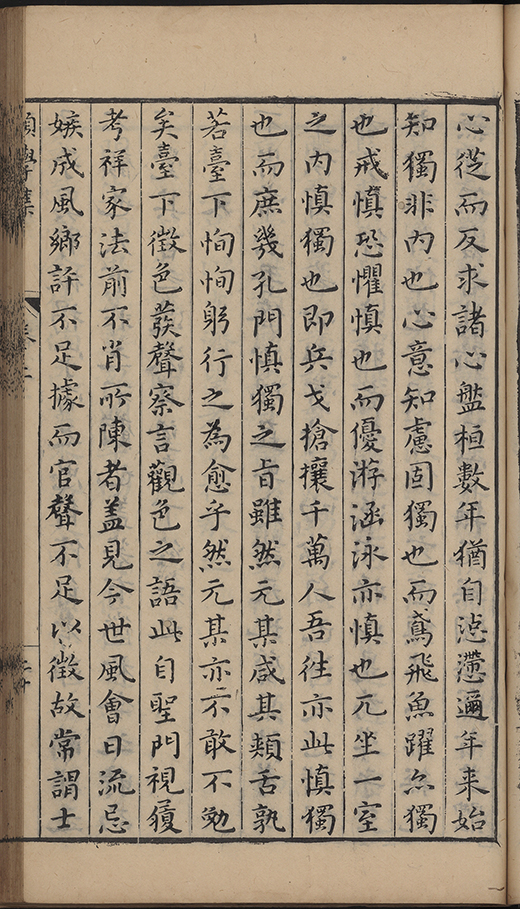 心從而反求諸心盤桓數年猶自惉懘邇年来始
知獨非内也心意知慮固獨也而鳶飛魚躍亦獨
也戒慎恐懼慎也而優游涵泳亦慎也兀坐一室
之内慎獨也即兵戈搶攘千萬人吾徃亦此慎獨
也而庶幾孔門慎獨之旨雖然元某咸其頰舌孰
若臺下恂恂躬行之為愈乎然元某亦不敢不勉
矣臺下徴色發聲察言觀色之語此自聖門視履
考祥家法前不肖所陳者盖見今世風會日流忌
嫉成風鄉評不足據而官聲不足以徴故常謂士